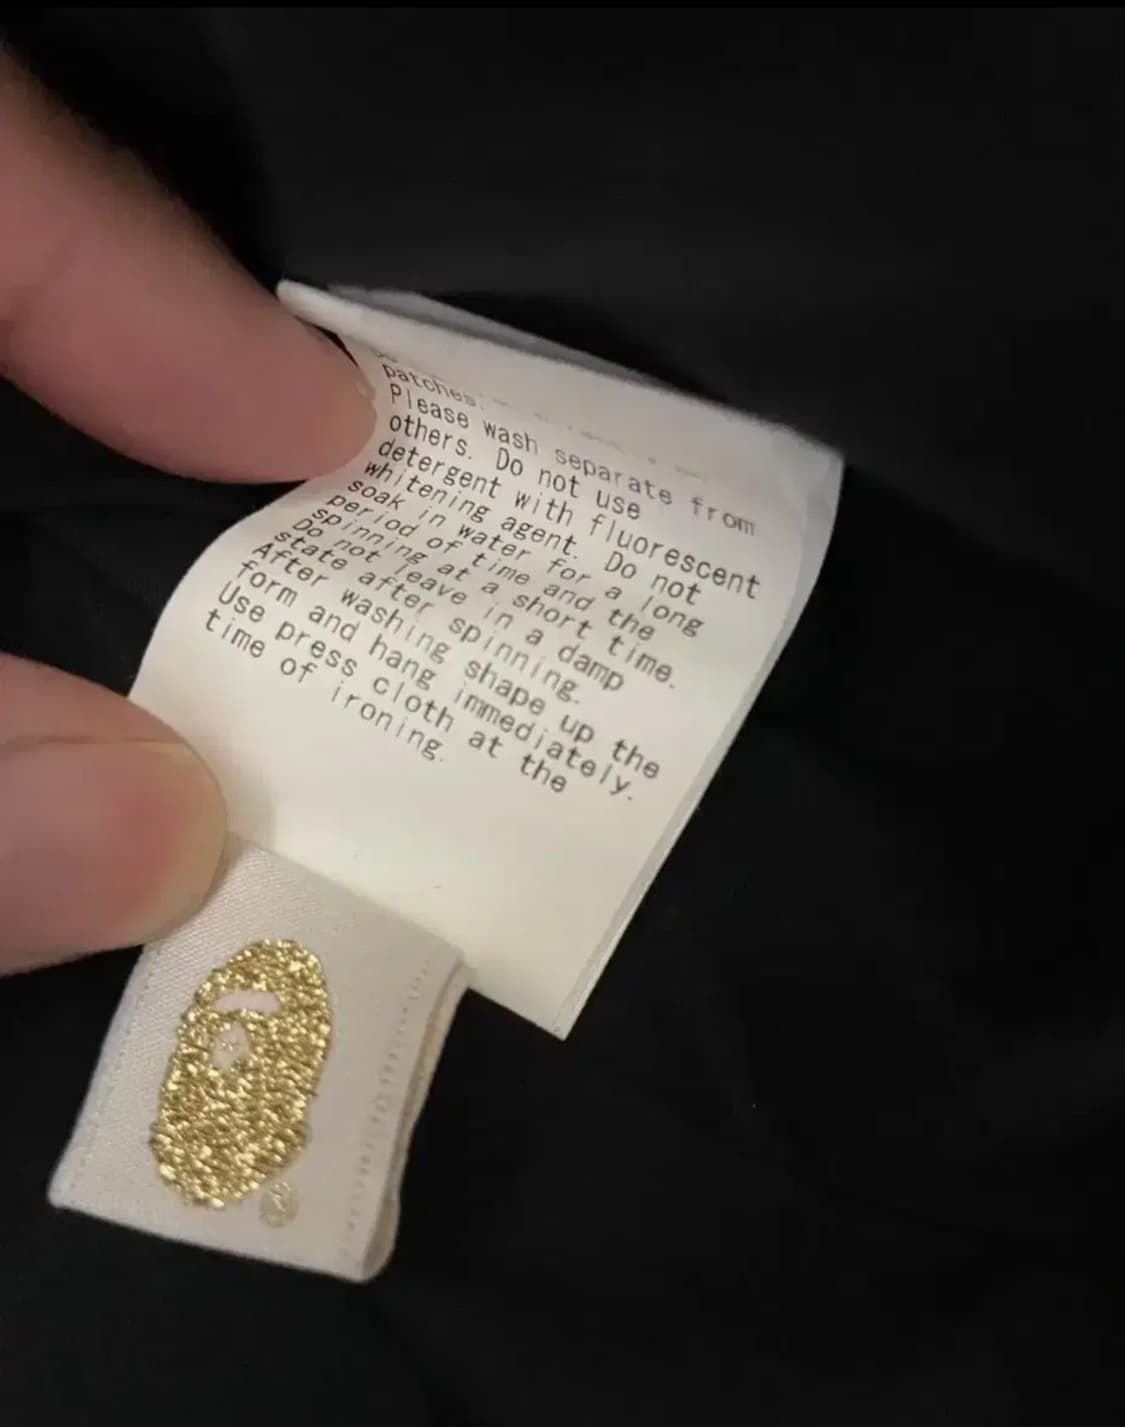 patches.
Please wash separate from
others. Do not use
detergent with fluorescent
whitening agent. Do not
soak in water for a long
period of time and the
spinning at a short time.
Do not leave in a damp
state after spinning.
After washing shape up the
form and hang immediately.
Use press cloth at the
time of ironing.